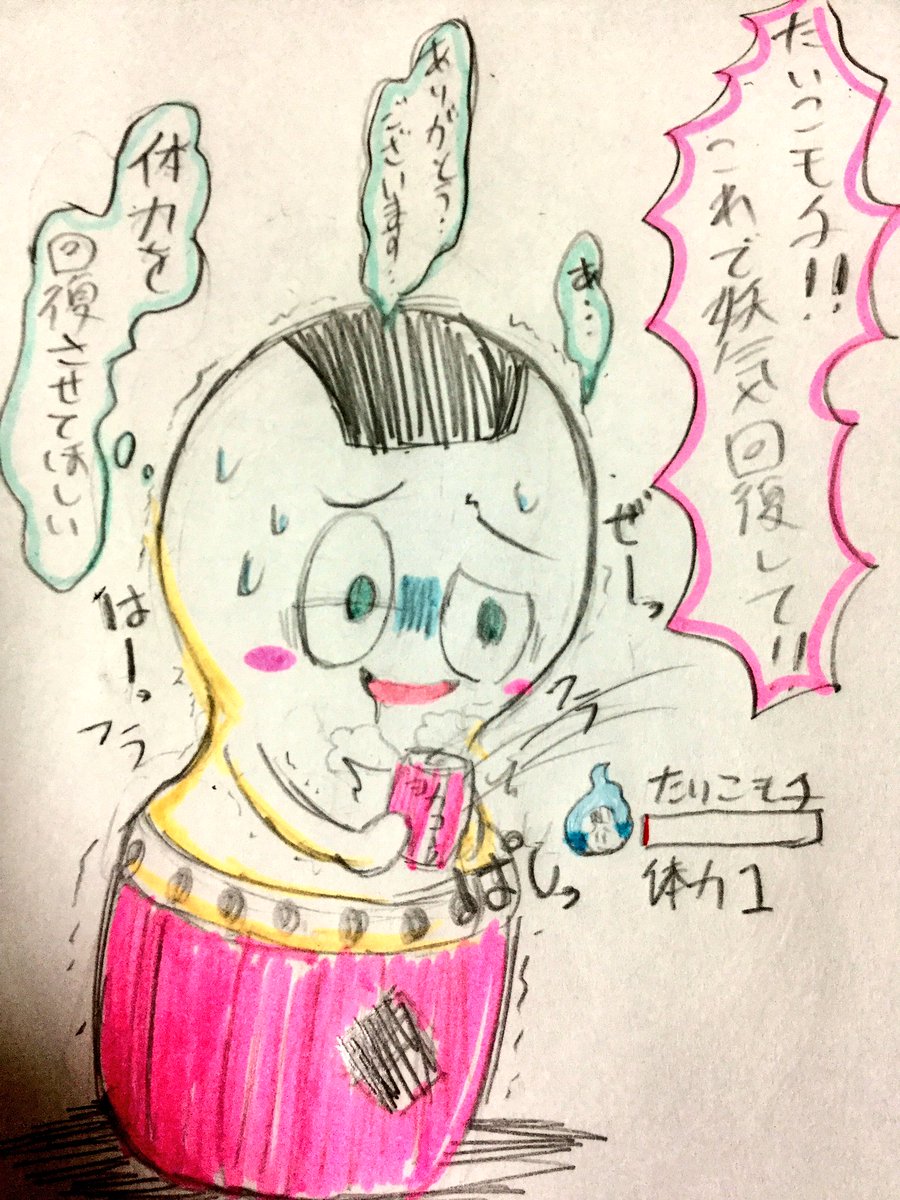 たいこモチ!!
これで妖気回復して!!
あ‥‥
ありがとう‥
ございます‥
体力を
回復させてほしい
ぜーっ
はーっ
フラ
フラ
ぱしっ
たいこモチ
体力1